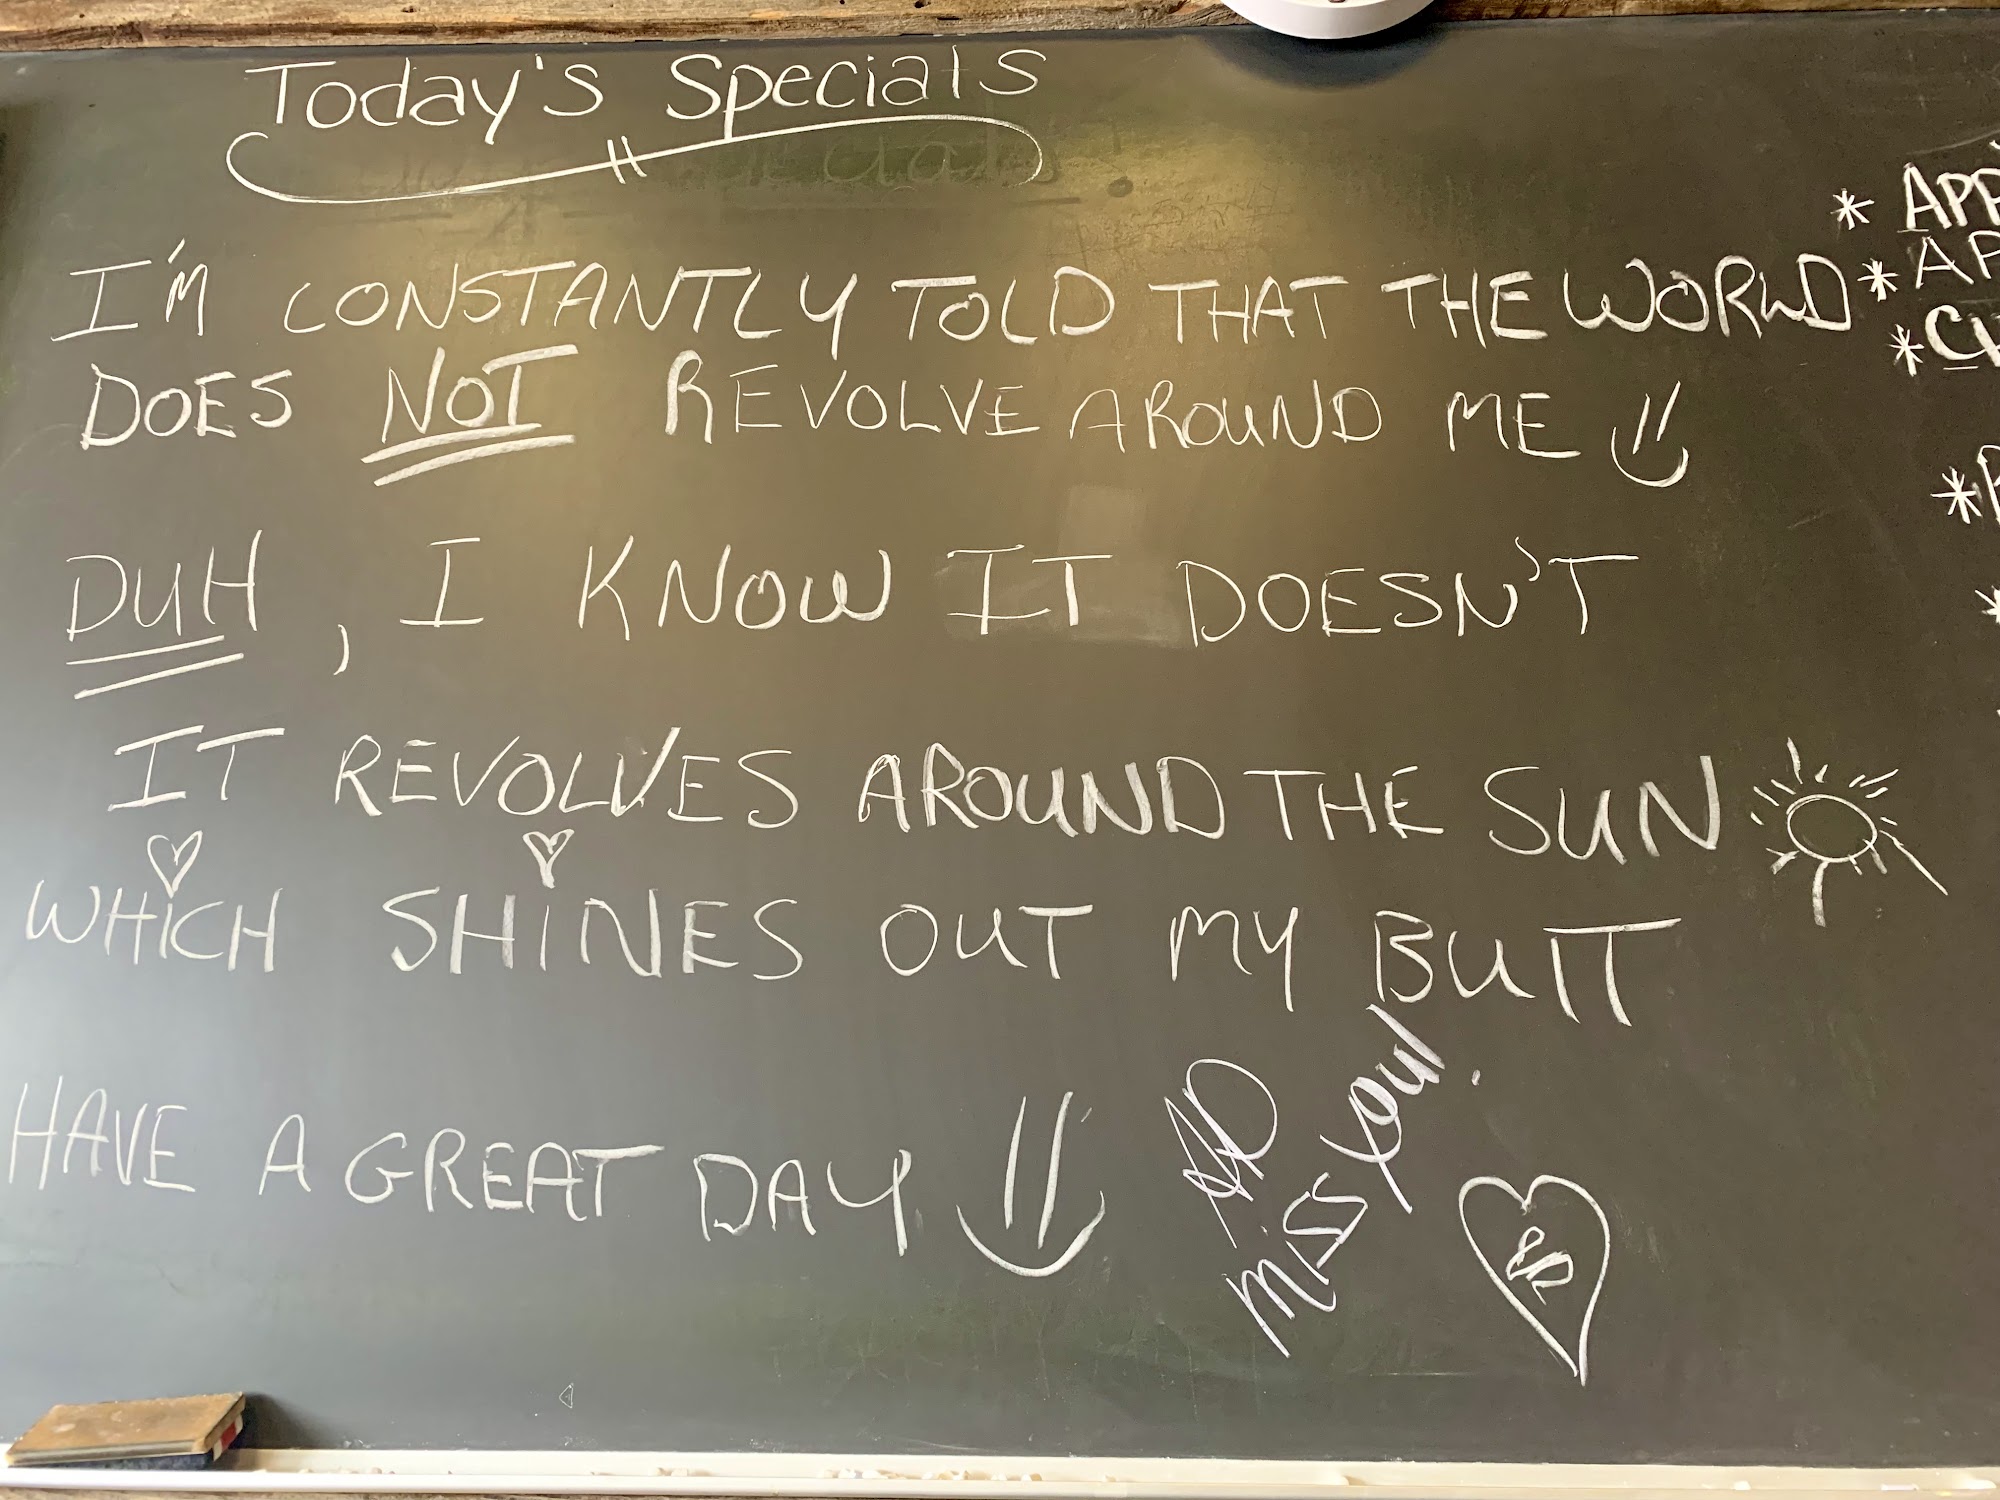 Today's Specials
I'M CONSTANTLY TOLD THAT THE WORLD
DOES NOT REVOLVE AROUND ME
DUH, I KNOW IT DOESN'T
IT REVOLVES AROUND THE SUN
WHiCH SHiNES OUT MY BUTT
HAVE A GREAT DAY
Miss You!
* APP
* AP